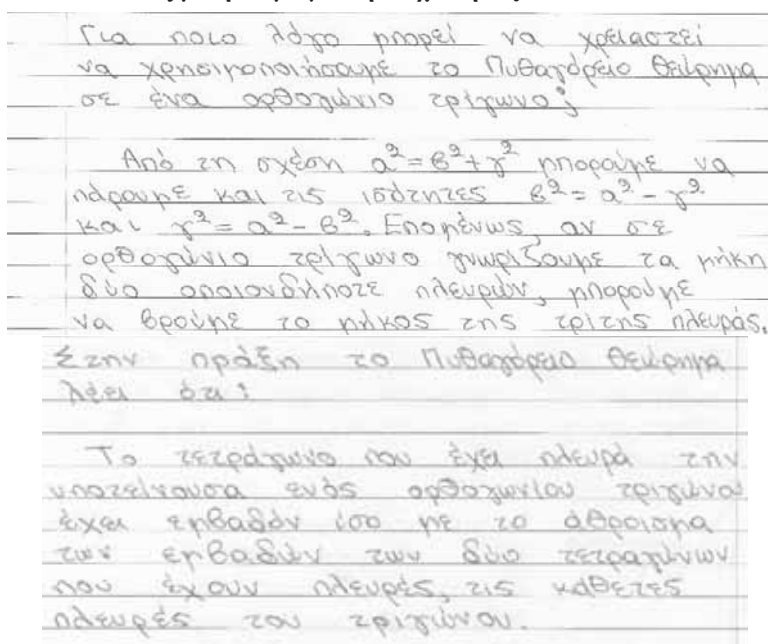 Για ποιο λόγο μπορεί να χρειαστεί
να χρησιμοποιήσουμε το Πυθαγόρειο θεώρημα
σε ένα ορθογώνιο τρίγωνο;
Από τη σχέση α²=β²+γ² μπορούμε να
πάρουμε και τις ισότητες β²=α²-γ²
και γ²=α²-β². Επομένως, αν σε
ορθογώνιο τρίγωνο γνωρίζουμε τα μήκη
δύο οποιονδήποτε πλευρών, μπορούμε
να βρούμε το μήκος της τρίτης πλευράς.
Στην πράξη το Πυθαγόρειο Θεώρημα
λέει ότι:
Το τετράγωνο που έχει πλευρά την
υποτείνουσα ενός ορθογωνίου τριγώνου
έχει εμβαδόν ίσο με το άθροισμα
των εμβαδών των δύο τετραγώνων
που έχουν πλευρές, τις κάθετες
πλευρές του τριγώνου.